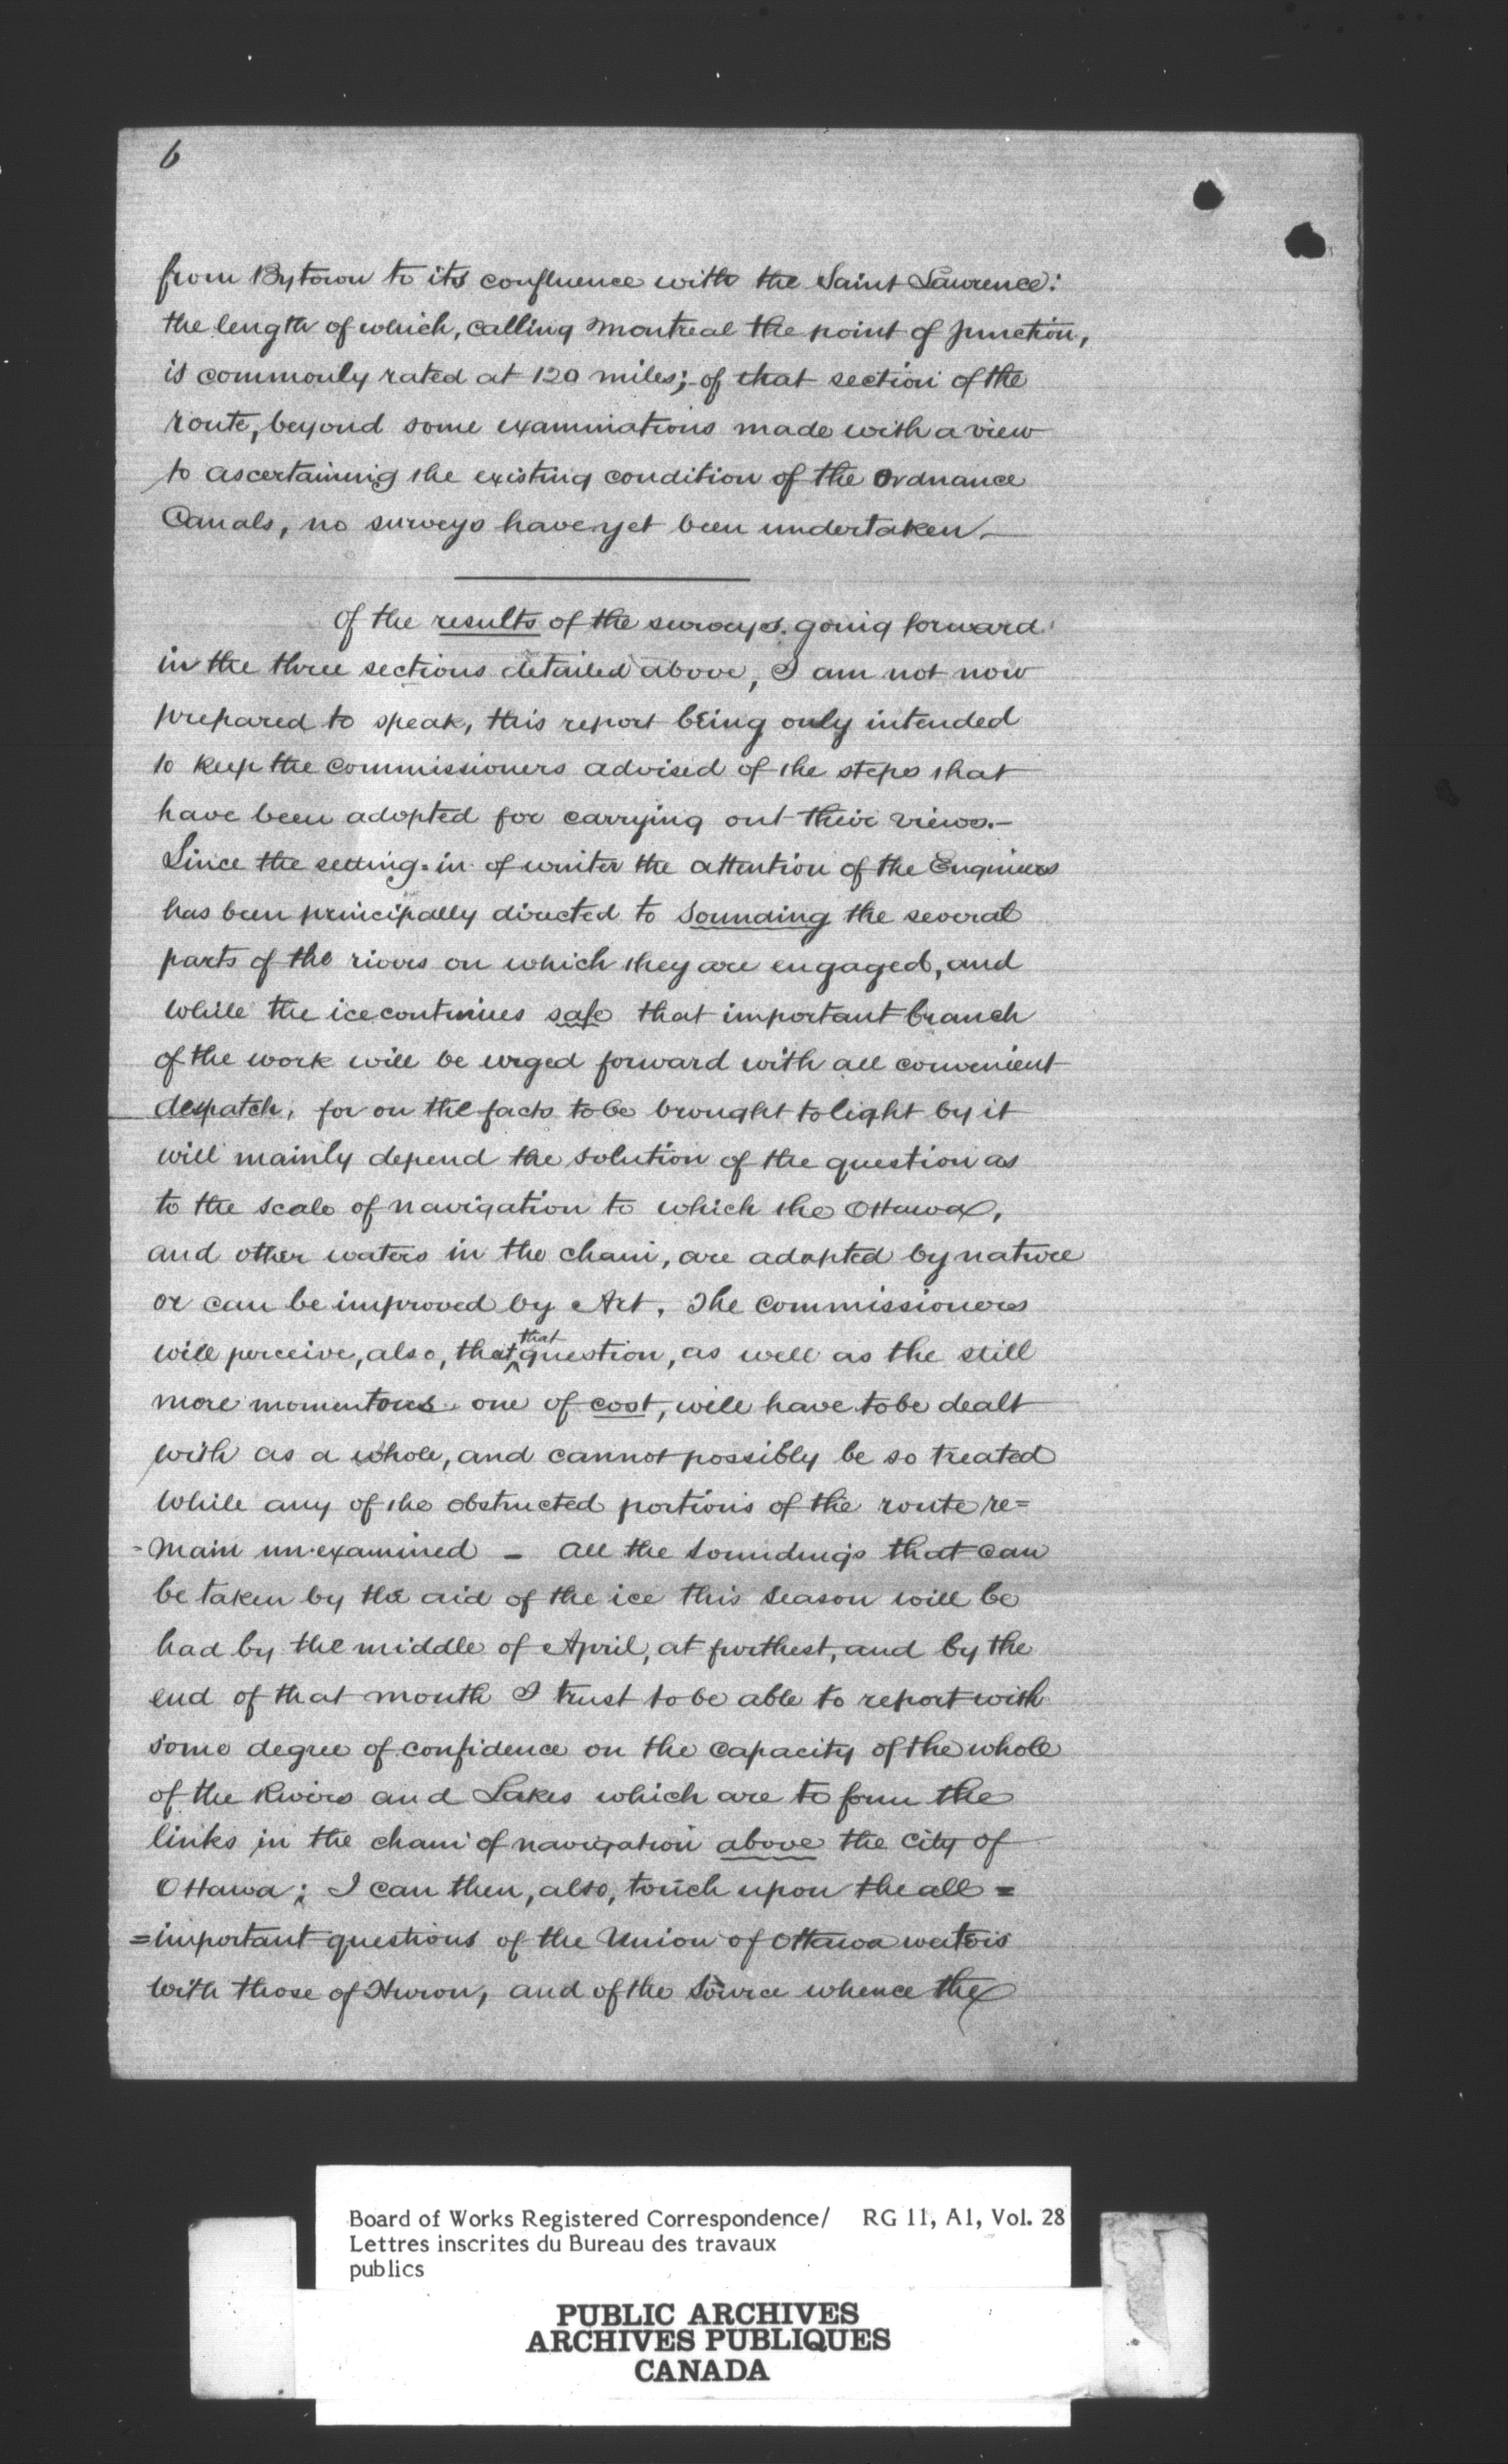 6
from Bytown to its confluence with the Saint Lawrence:
the length of which, calling Montreal the point of junction,
is commonly rated at 120 miles; of that section of the
route, beyond some examinations made with a view
to ascertaining the existing condition of the Ordnance
Canals, no surveys have yet been undertaken.—
Of the results of the surveys going forward
in the three sections detailed above, I am not now
prepared to speak, this report being only intended
to keep the Commissioners advised of the steps that
have been adopted for carrying out their views.—
Since the setting-in of winter the attention of the Engineers
has been principally directed to sounding the several
parts of the rivers on which they are engaged, and
while the ice continues safe that important branch
of the work will be urged forward with all convenient
despatch, for on the facts to be brought to light by it
will mainly depend the solution of the question as
to the scale of navigation to which the Ottawa,
and other waters in the chain, are adapted by nature
or can be improved by Art. The Commissioners
will perceive, also, that that question, as well as the still
more momentous one of cost, will have to be dealt
with as a whole, and cannot possibly be so treated
while any of the obstructed portions of the route re=
=main un-examined – All the soundings that can
be taken by the aid of the ice this season will be
had by the middle of April, at furthest, and by the
end of that month I trust to be able to report with
some degree of confidence on the capacity of the whole
of the Rivers and Lakes which are to form the
links in the chain of navigation above the City of
Ottawa; I can then, also, touch upon the all=
=important questions of the Union of Ottawa waters
with those of Huron, and of the source whence the
Board of Works Registered Correspondence/ RG 11, A1, Vol. 28
Lettres inscrites du Bureau des travaux
publics
PUBLIC ARCHIVES
ARCHIVES PUBLIQUES
CANADA